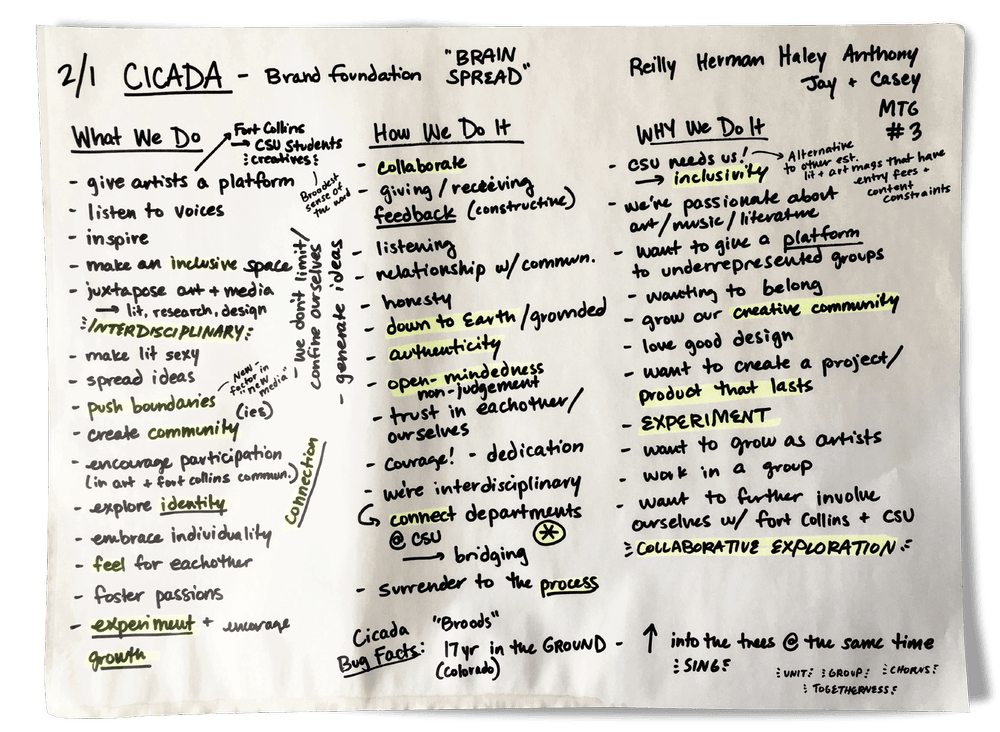 2/1 CICADA - Brand Foundation "BRAIN
SPREAD"
Reilly Herman Haley Anthony
Jay + Casey
MTG
#3
What We Do
Fort Collins
→ CSU Students
creatives
Broadest
sense of
the word
- give artists a platform
- listen to voices
- inspire
- make an inclusive space
- juxtapose art + media
→ lit, research, design
INTERDISCIPLINARY
- make lit sexy
- spread ideas
- push boundaries
(ies)
New -
factor in
"new
media"
- create community
- encourage participation
(in art + fort collins commun.)
- explore identity
- embrace individuality
- feel for eachother
- foster passions
- experiment + encourage
growth
- we don't limit/
confine ourselves
- generate ideas
connection
How We Do It
- collaborate
- giving / receiving
feedback (constructive)
- listening
- relationship w/ commun.
- honesty
- down to Earth /grounded
- authenticity
- open-mindedness
non-judgement
- trust in eachother/
ourselves
- courage! - dedication
- we're interdisciplinary
connect departments
@ CSU
→ bridging
- surrender to the process
WHY We Do It
- CSU needs us!
→ inclusivity
Alternative
to other est.
lit + art mags that have
entry fees +
content
constraints
- we're passionate about
art/music/literature
- want to give a platform
to underrepresented groups
- wanting to belong
- grow our creative community
- love good design
- want to create a project/
product that lasts
- EXPERIMENT
- want to grow as artists
- work in a group
- want to further involve
ourselves w/ fort Collins + CSU
COLLABORATIVE EXPLORATION
Cicada
Bug Facts:
"Broods"
17yr in the GROUND -
(Colorado)
↑ into the trees @ the same time
SING
UNIT GROUP CHORNS
TOGETHERNESS